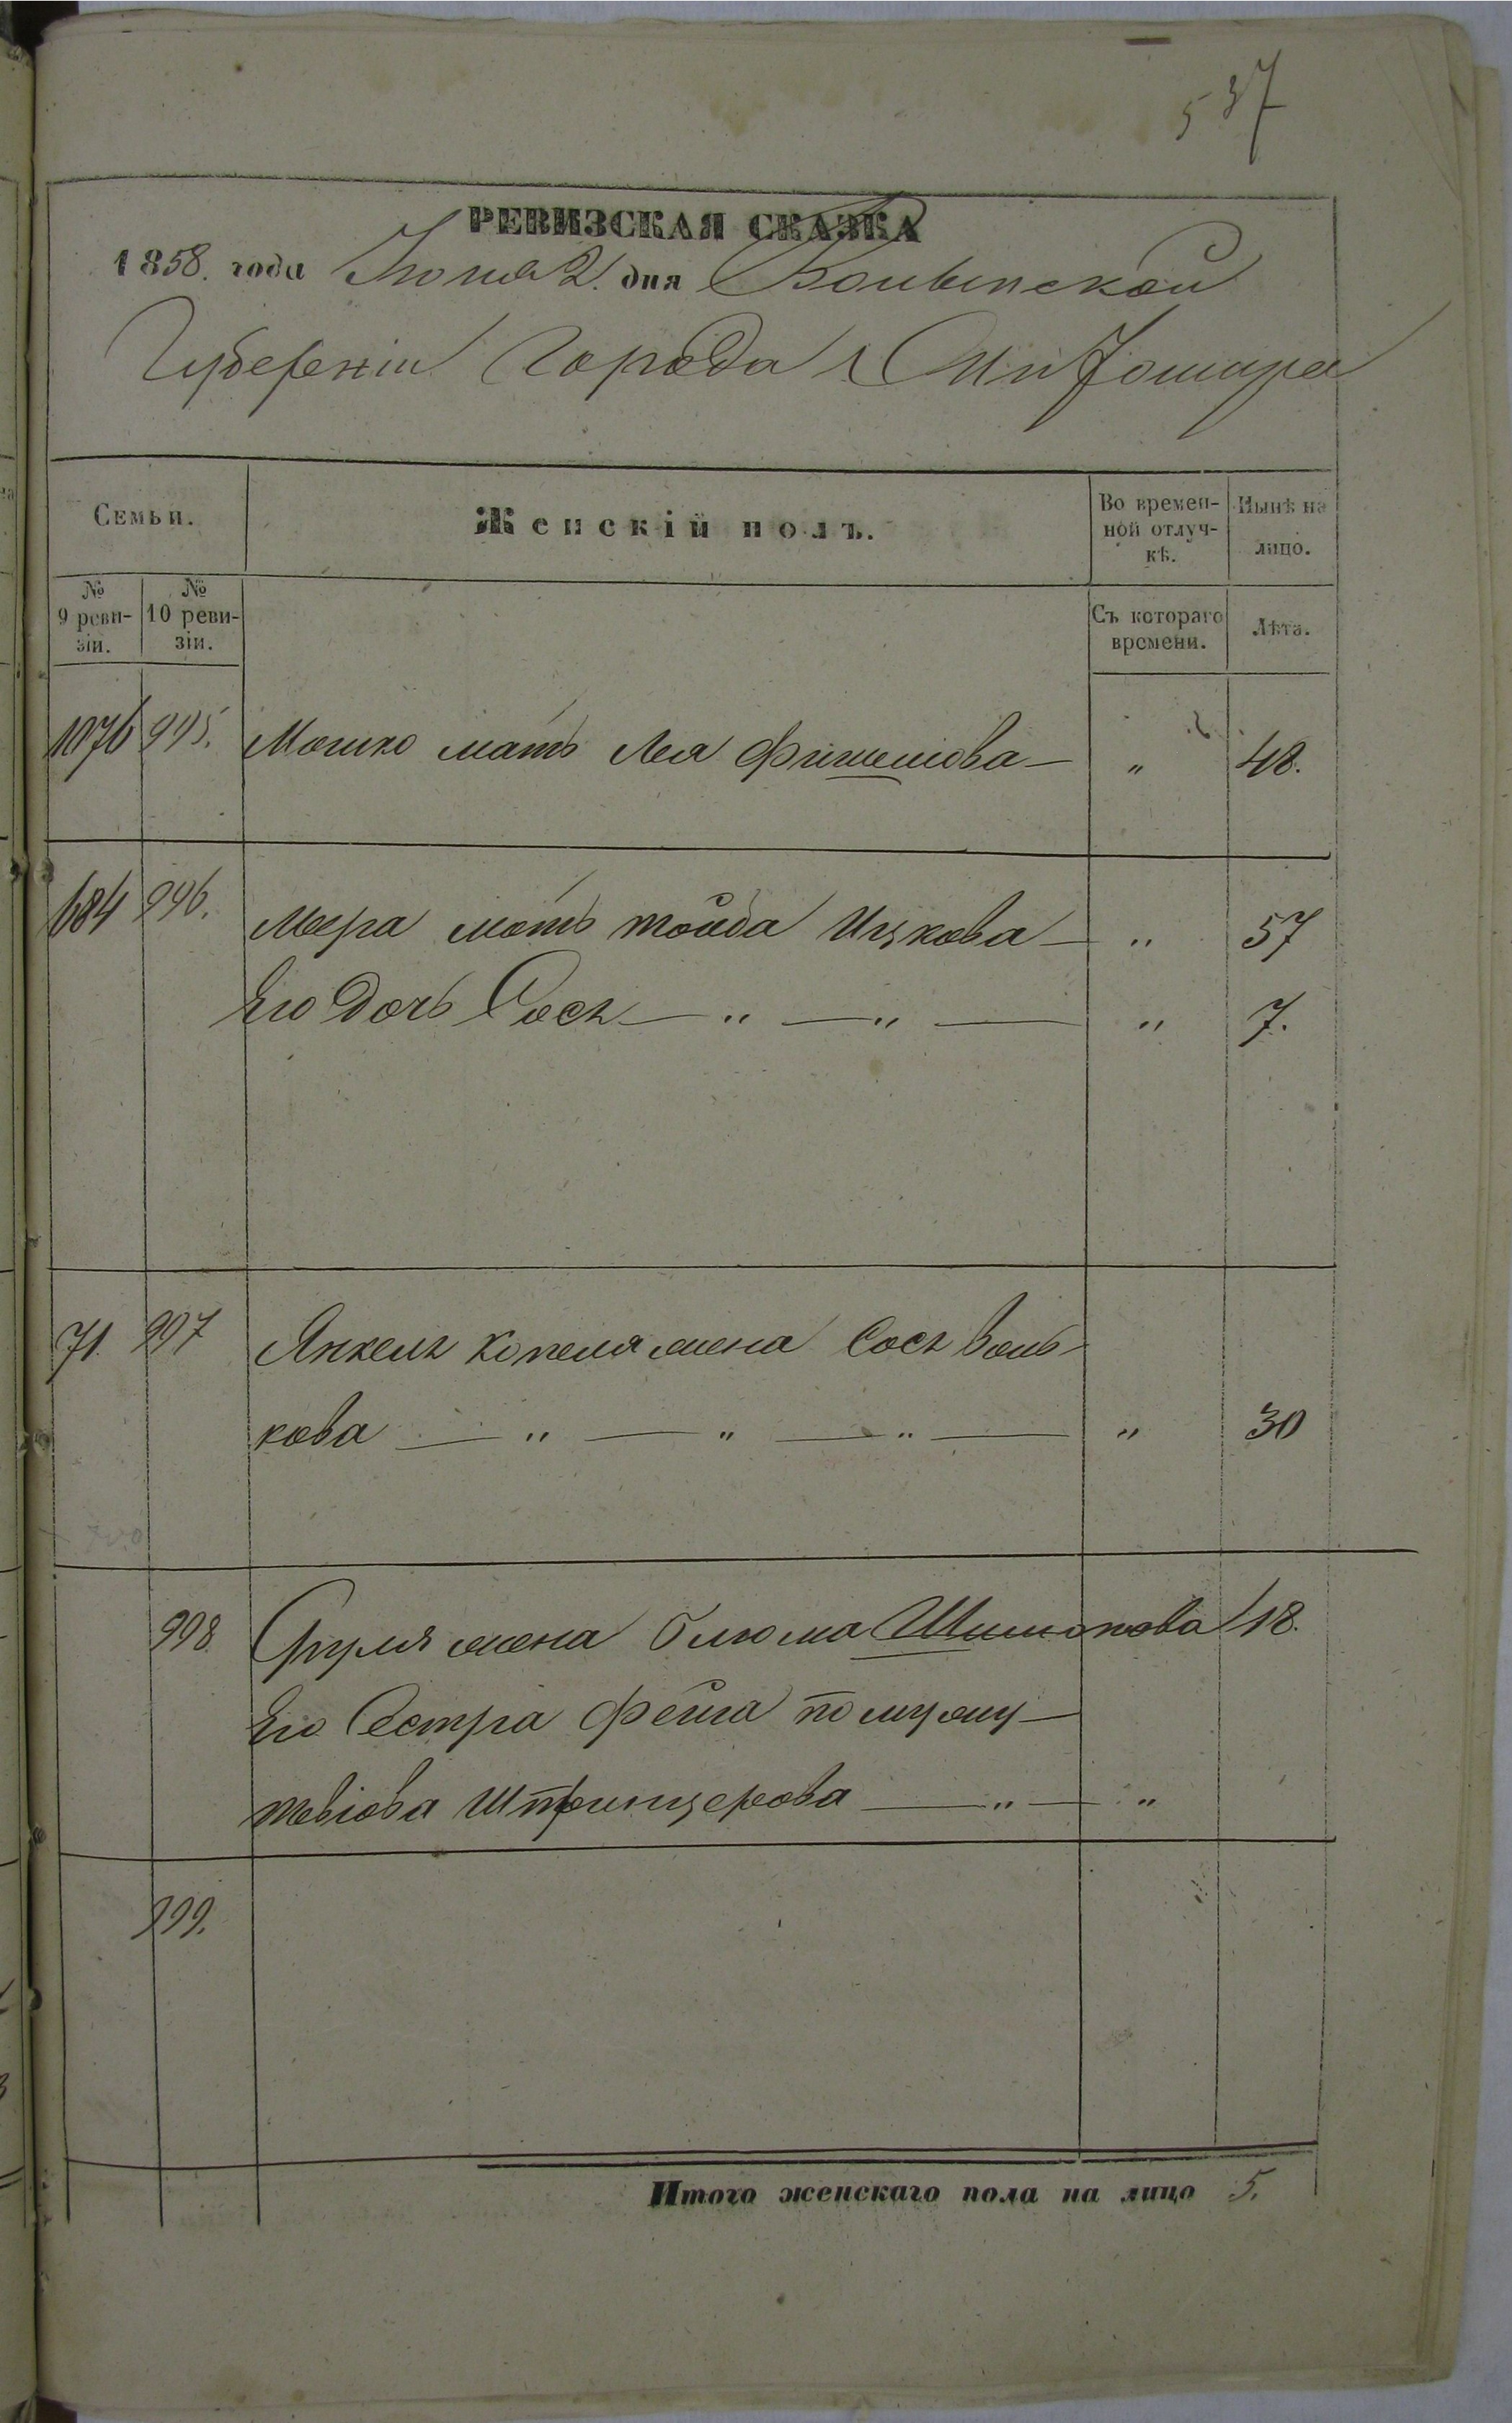 537
РЕВИЗСКАЯ СКАЗКА
1858. года Июня 2. дня Волынской
Губерніи Города Житомира
Семьи.
Женскій полъ.
Во времен-
ной отлуч-
кѣ.
Нынѣ на
лицо.
№
9 реви-
зіи.
№
10 реви-
зіи.
Съ котораго
времени.
Лѣта.
1076 995. Мошко мать Лея Фишелова — „ 48.
684 996. Мера мать Тойба Ицкова — „ 57
Его дочь Сося — „ — „ — „ 7.
71. 997 Янкель Копеля жена Сося Воль-
кова — „ — „ — „ — „ 30
998. Сруля жена Блюма Шимонова 18.
Его Сестра Фейга по мужу —
Тевіова Штринцерова — „ — „
999.
Итого женскаго пола на лицо 5.